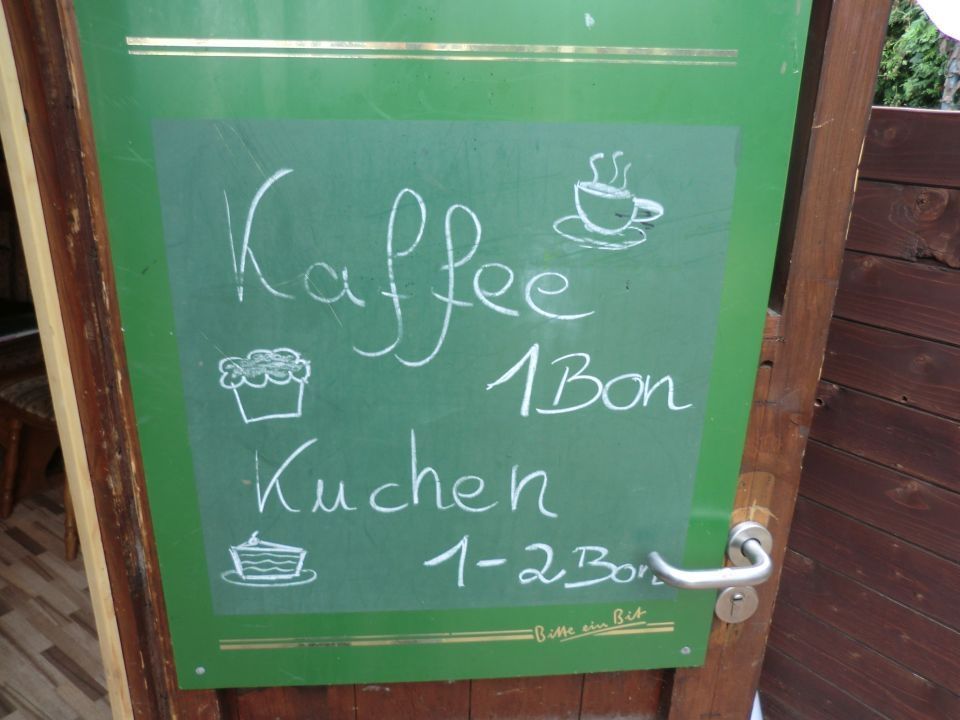 Kaffee
1 Bon
Kuchen
1-2 Bon
Bitte ein Bit